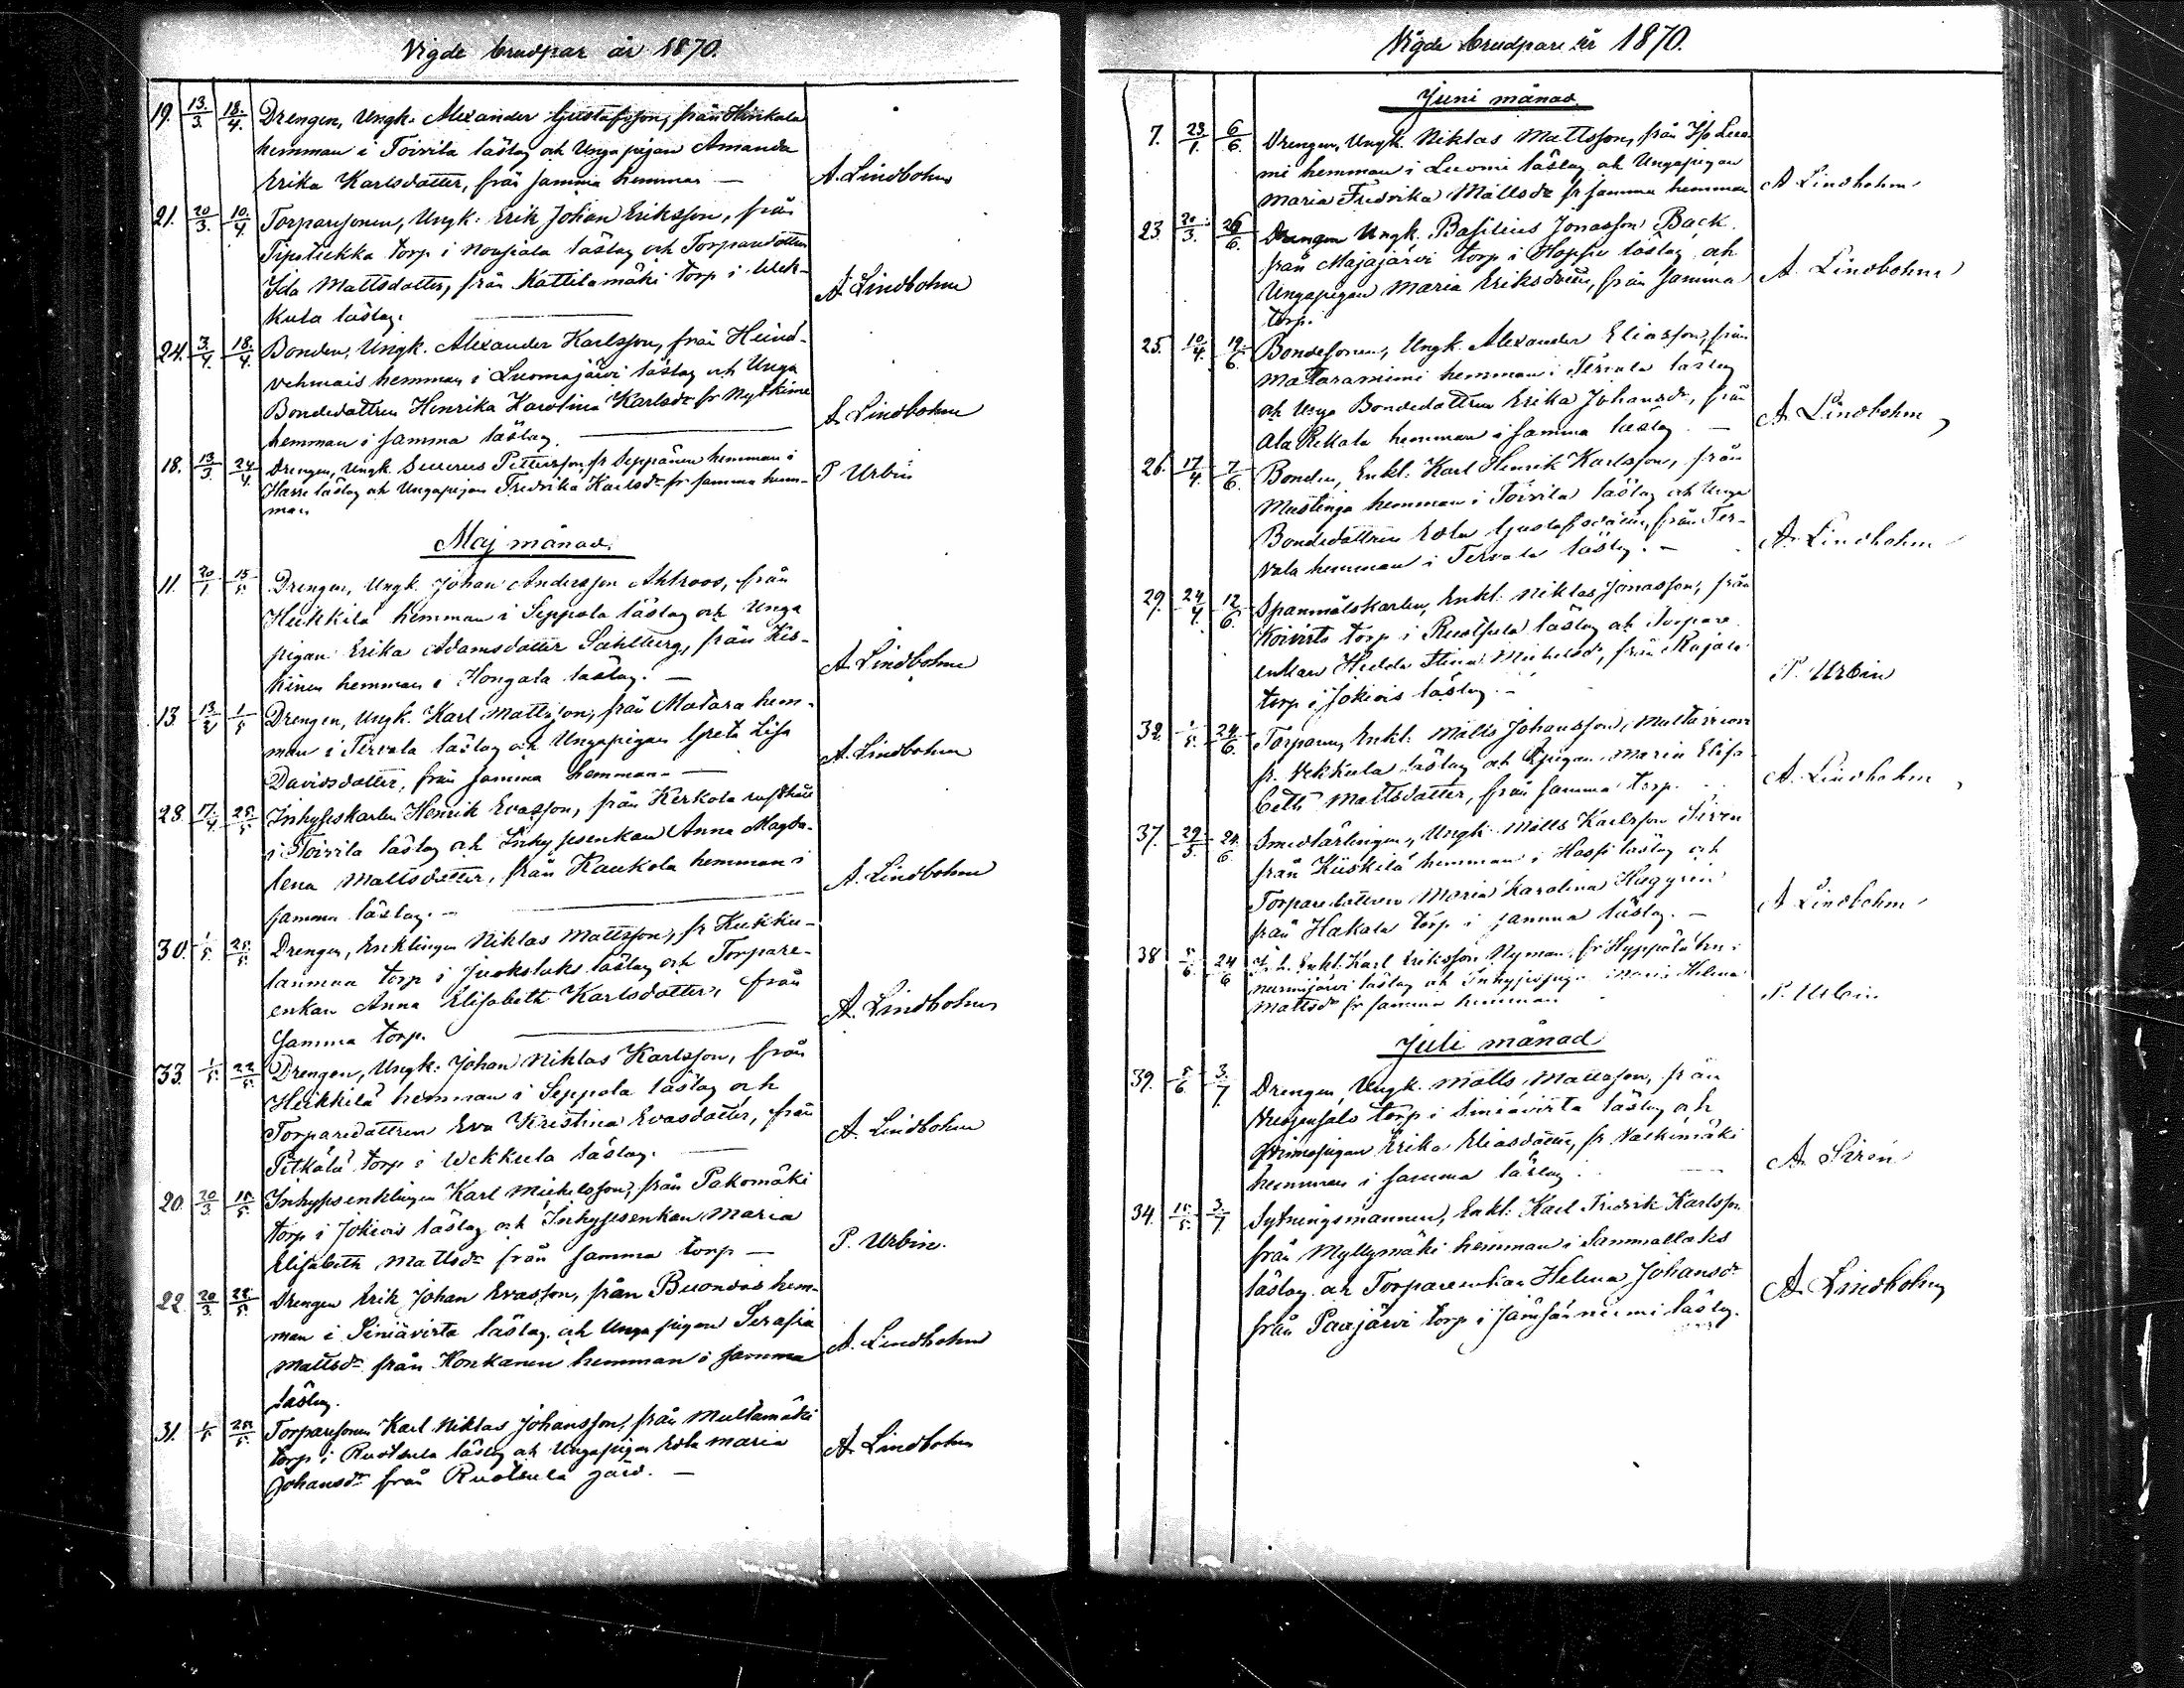 Vigde brudpar år 1870.
19. 13/3. 18/4. Drengen, Ungk. Alexander Gustafsson, från Hirskala
hemman i Toivila låstag och Ungapigan Amanda
Erika Karlsdotter, från samma hemman — A. Lindbohm
21. 20/3. 10/4. Torparesonen, Ungk. Erik Johan Eriksson, från
torp i låstag och Torparedottren
Ida Mattsdotter, från Kattilamäki torp i Wek-
kula låstag. — A. Lindbohm
24. 3/4. 18/4. Bonden, Ungk. Alexander Karlsson, från Heind-
vehmais hemman i Luomajärvi låstag och Unga
Bondedottren Henrika Karolina Karlsdr fr
hemman i samma låstag. — A. Lindbohm
18. 13/3. 24/4. Drengen, Ungk. Severus Pettersson, fr Seppänen hemman i
låstag och Ungapigan Fredrika Karlsdr fr samma hem-
man P Urbin
Maj månad.
11. 20/1. 15/5. Drengen, Ungk. Johan Andersson Ahlroos, från
Heikkilä hemman i Seppola låstag och Unga
pigan Erika Adamsdotter Sahlberg, från Kis-
kinen hemman i Hongola låstag. — A. Lindbohm
13 13/2 1/5 Drengen, Ungk. Karl Mattsson, från Matara hem-
man i Tervala låstag och Ungapigan Greta Lisa
Davidsdotter, från samma hemman. — A. Lindbohm
28. 17/4 25/5 Inhyseskarlen Henrik Evasson, från Kerkola
i Toivila låstag och Inhysesenkan Anna Magda-
lena Mattsdotter, från Raukola hemman i
samma låstag. — A. Lindbohm
30. 1/5. 25/5. Drengen, Enklingen Niklas Mattsson, fr Kukku-
lanmaa torp i Juokslaks låstag och Torpare-
enkan Anna Elisabeth Karlsdotter, från
samma torp. — A. Lindbohm
33. 1/5. 22/5. Drengen, Ungk. Johan Niklas Karlsson, från
Heikkilä hemman i Seppola låstag och
Torparedottren Eva Kristina Evasdotter, från
Pitkälä torp i Wekkula låstag. — A. Lindbohm
20. 20/3. 15/5. Inhysesenklingen Karl Mickelsson, från Pakomäki
torp i Jokivis låstag och Inhysesenkan Maria
Elisabeth Mattsdr från samma torp — P. Urbin.
22. 20/3. 22/5. Drengen Erik Johan Evasson, från Buondas hem-
man i Siniävirta låstag och Unga pigan Serafia
Mattsdr från Konkanen hemman i samma
låstag. A. Lindbohm
31. 1/5 25/5. Torparesonen Karl Niklas Johansson, från Multamäki
torp i Ruotsula låstag och Ungapigan Edla Maria
Johansdr från Ruotsula gård. — A. Lindbohm
Vigde brudpar år 1870.
Juni månad
7. 23/1. 6/6. Drengen, Ungk. Niklas Mattsson, från Luo-
mi hemman i Luomi låstag och Ungapigan
Maria Fredrika Mattsdr fr samma hemman A Lindbohm
23. 20/3. 26/6. Drengen Ungk. Basilius Jonasson Back
från Majajärvi torp i låstag och
Ungapigan Maria Eriksdotter, från samma
torp. A. Lindbohm
25. 10/4. 19/6. Bondesonen, Ungk. Alexander Eliasson, från
Mataraniemi hemman i Tervala låstag
och Unga Bondedottren Erika Johansdr, från
Ala hemman i samma låstag — A. Lindbohm
26. 17/4. 7/6. Bonden, Enkl. Karl Henrik Karlsson, från
Mustinga hemman i Toivila låstag och Unga
Bondedottren Edla Gustafsdotter, från Ter-
vala hemman i Tervala låstag. — A. Lindbohm
29. 24/4. 12/6. Spanmålskarlen, Enkl. Niklas Jonasson, från
Koivisto torp i Ruotsula låstag och Torpare
enkan Hedda Stina Mickelsdr, från Rajala
torp i Jokivis låstag. — P. Urbin
32. 1/5. 24/6. Torparen, Enkl. Matts Johansson,
fr. Vekkula låstag och pigan Maria Elisa
beth Mattsdotter, från samma torp. A. Lindbohm
37. 29/5. 24/6. Smedlärlingen, Ungk. Matts Karlsson Siren
från Kiiskilä hemman i låstag och
Torparedottren Maria Karolina
från Hakala torp i samma låstag. — A Lindbohm
38 5/6. 24/6 Enkl. Karl Eriksson Nyman fr Hyppölä
Nurmijärvi låstag och Inhysespigan Maria Helena
Mattsdr fr samma hemman P. Urbin
Juli månad
39. 5/6. 3/7. Drengen, Ungk. Matts Mattsson, från
torp i Siniävirta låstag och
Qvinnspigan Erika Eliasdotter, fr Vaskimäki
hemman i samma låstag. A. Sirén
34. 15/5. 3/7. Sytningsmannen, Enkl. Karl Fredrik Karlsson
från Myllymäki hemman i Sammallaks
låstag och Torpareenkan Helena Johansdr
från Paxjärvi torp i Jämsänniemi låstag. A. Lindbohm